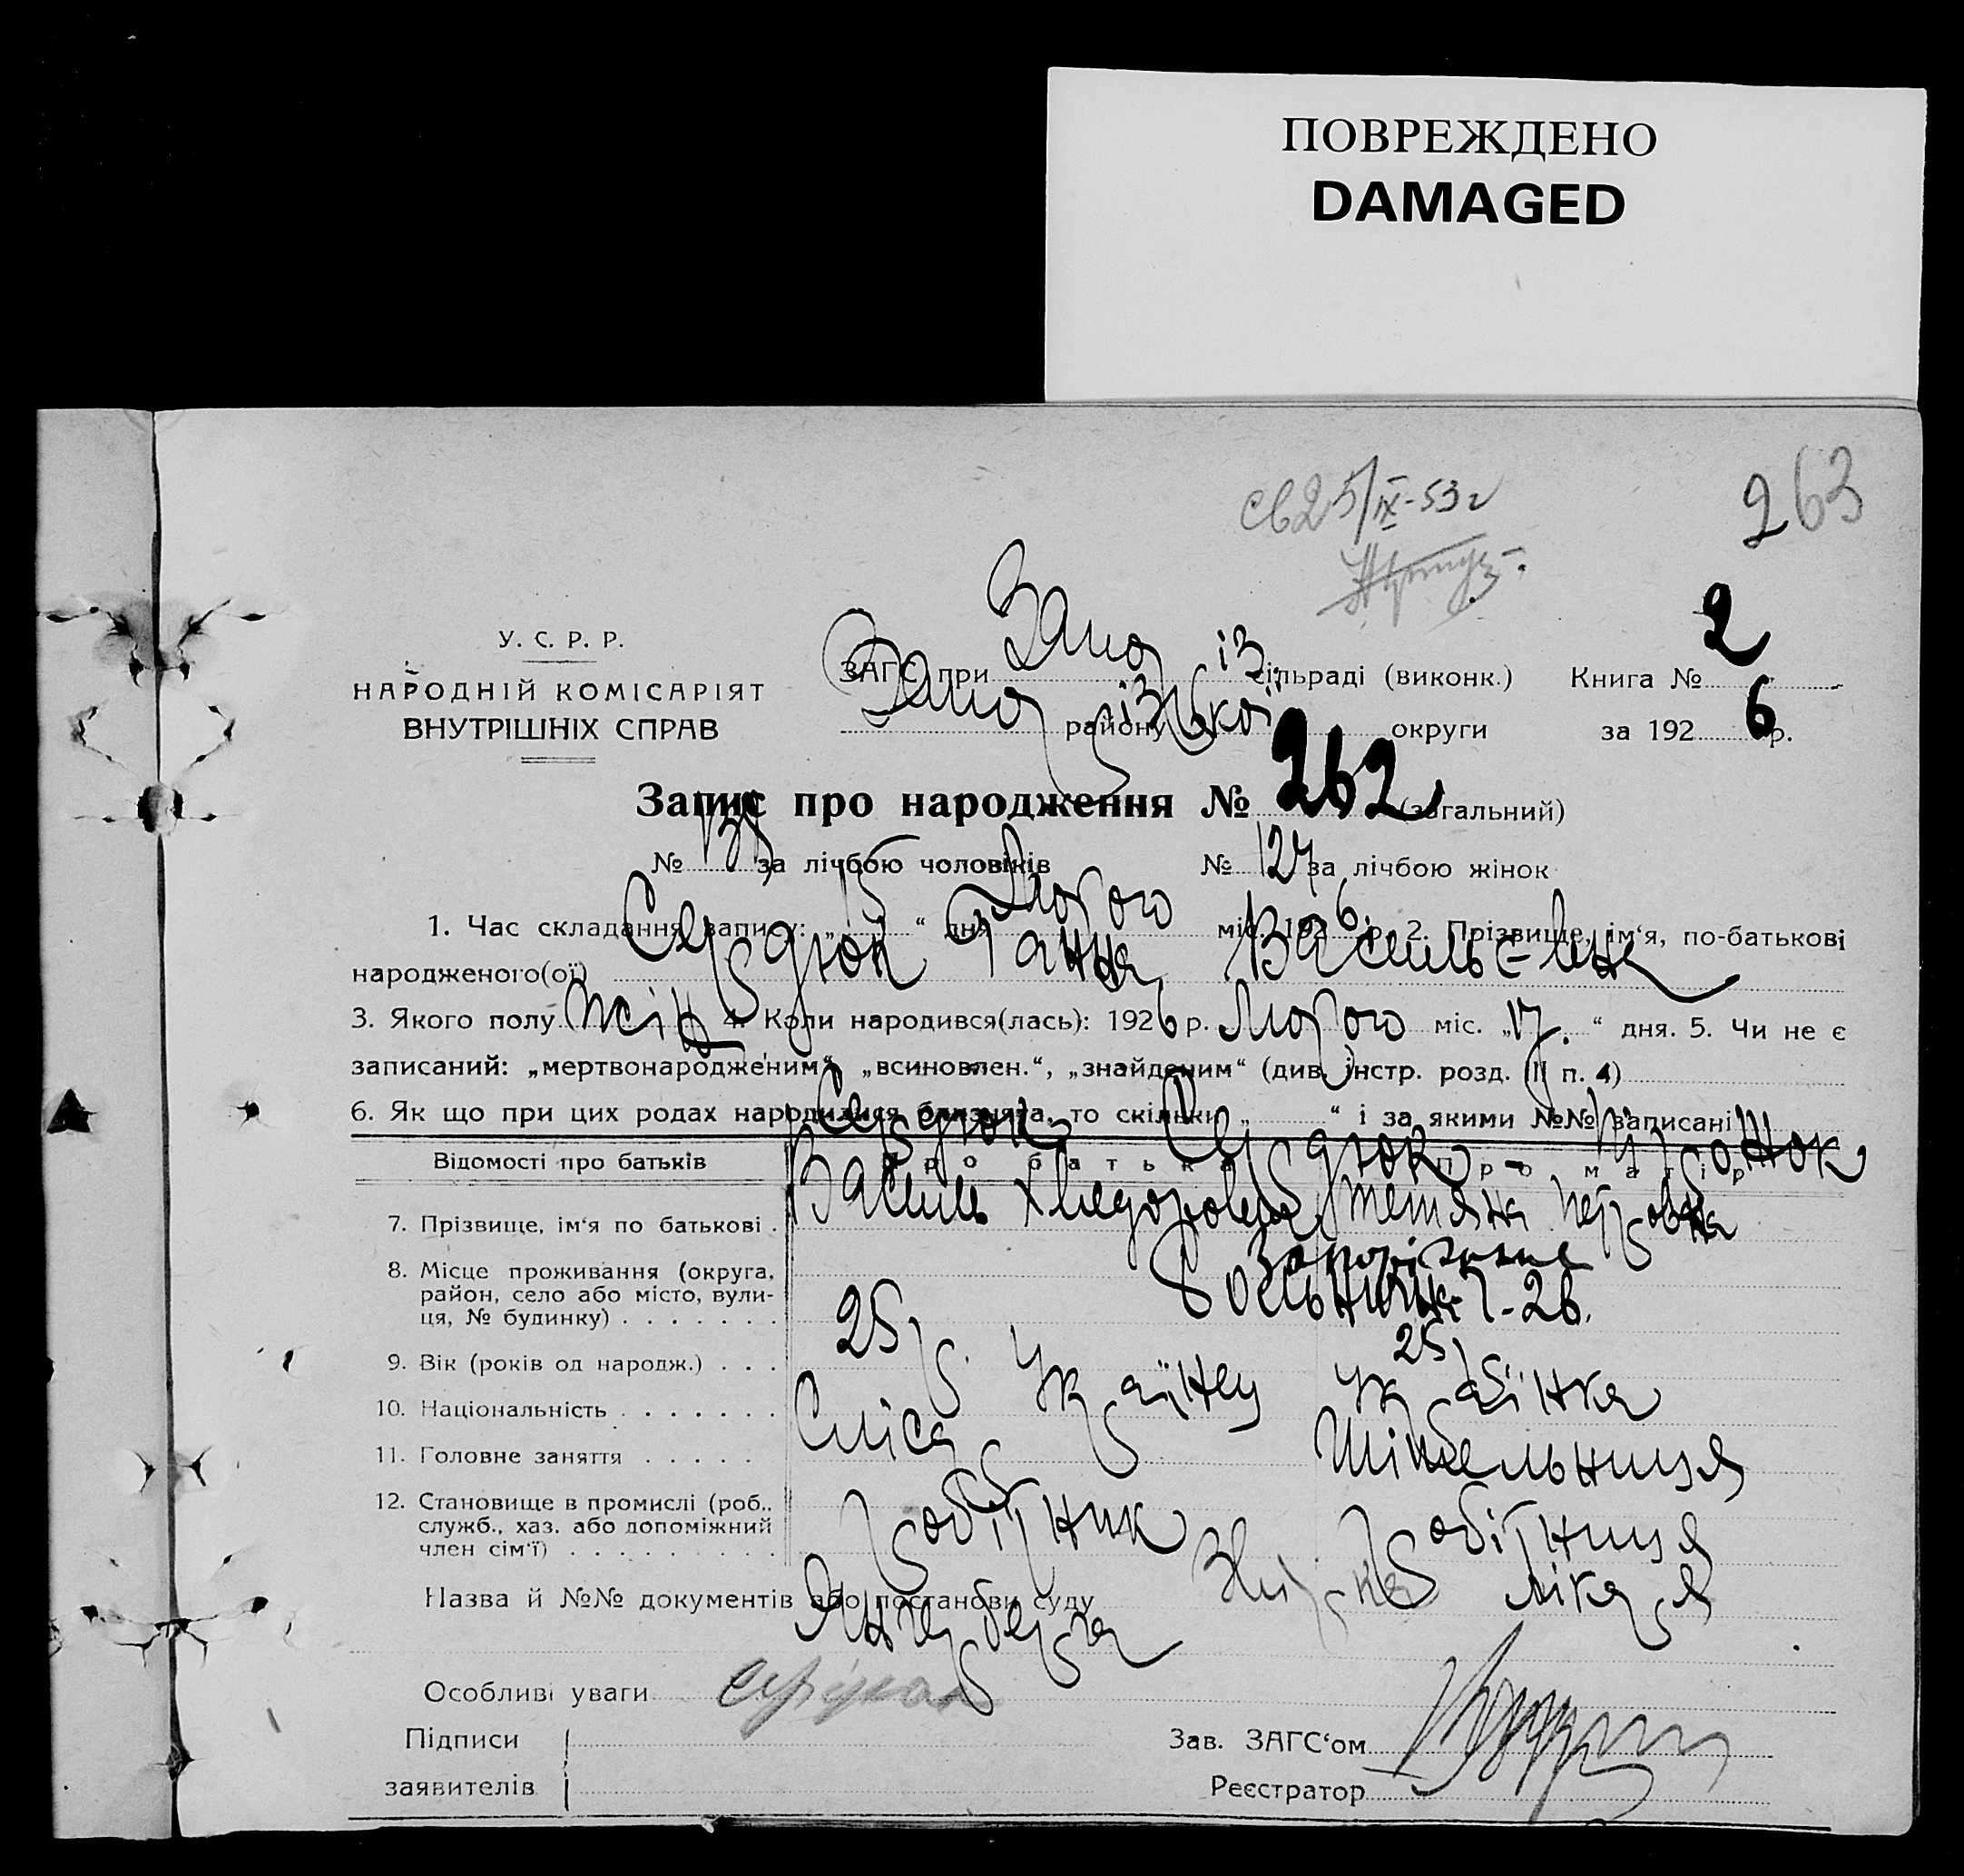 ПОВРЕЖДЕНО
DAMAGED
св 25/IX-53 г
263
У. С. Р. Р.
НАРОДНІЙ КОМІСАРІЯТ
ВНУТРІШНІХ СПРАВ
ЗАГС при Запоріз. сільраді (виконк.) Книга № 2
району Запорізької округи за 1926 р.
Запис про народження № 262 (загальний)
№ за лічбою чоловіків № 127 за лічбою жінок
1. Час складання запису: „ “ дня Лютого міс. 1926 р. 2. Прізвище, ім‘я, по-батькові
народженого(ої) Сердюк Ганна Васильєвна
3. Якого полу жін 4. Коли народився(лась): 1926 р. Лютого міс. „17“ дня. 5. Чи не є
записаний: „мертвонародженим“, „всиновлен.“, „знайденим“ (див. інстр. розд. II п. 4)
6. Як що при цих родах народилися близнята, то скільки „ “ і за якими №№ записані
Відомості про батьків Про батька Про матір
7. Прізвище, ім‘я по батькові . Сердюк Василь Хведорович Сердюк - Тетяна Петровна
8. Місце проживання (округа, район, село або місто, вулиця, № будинку) Запоріжжє - 26.
9. Вік (років од народж.) . . . 25 р. 25 р.
10. Національність Українец Українка
11. Головне заняття Слісар
12. Становище в промислі (роб., служб., хаз. або допоміжний член сім‘ї) Робітник Робітниця
Назва й №№ документів або постанови суду лікаря
Особливі уваги
Підписи
заявителів
Зав. ЗАГС‘ом
Реєстратор